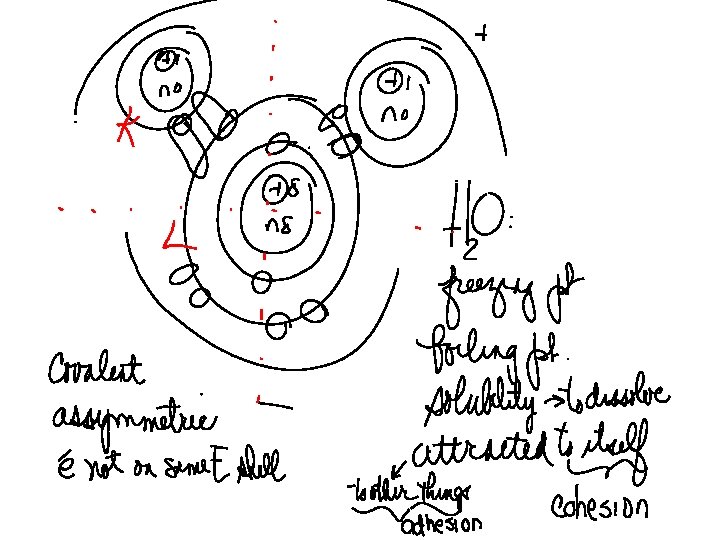 +
+1
n0
+1
n0
+8
n8
H2O:
freezing pt
boiling pt.
solubility → to dissolve
attracted to itself
to other things
adhesion
cohesion
Covalent
assymmetric
ē not on same E shell